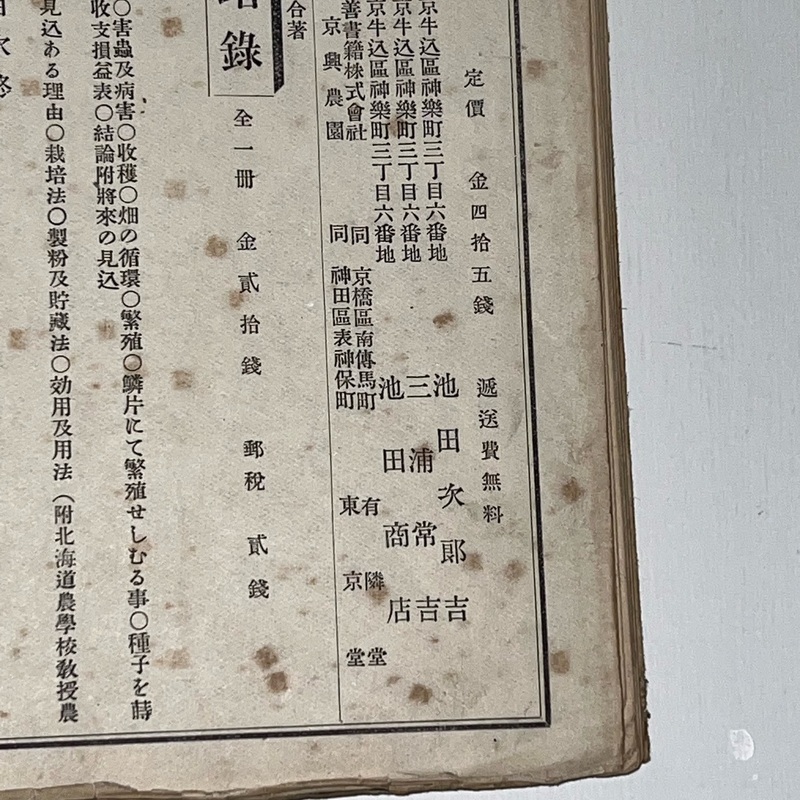 定價 金四拾五錢 遞送費無料
京牛込區神樂町三丁目六番地 池田次郎吉
京牛込區神樂町三丁目六番地 三浦常吉
京牛込區神樂町三丁目六番地 池田商店
善書籍株式會社 同 京橋區南傳馬町 有隣堂
京興農園 同 神田區表神保町 東京堂
合著
錄 全一冊 金貳拾錢 郵稅 貳錢
〇害蟲及病害〇收穫〇畑の循環〇繁殖〇鱗片にて繁殖せしむる事〇種子を蒔
收支損益表〇結論附將來の見込
見込ある理由〇栽培法〇製粉及貯藏法〇効用及用法（附北海道農學校敎授農